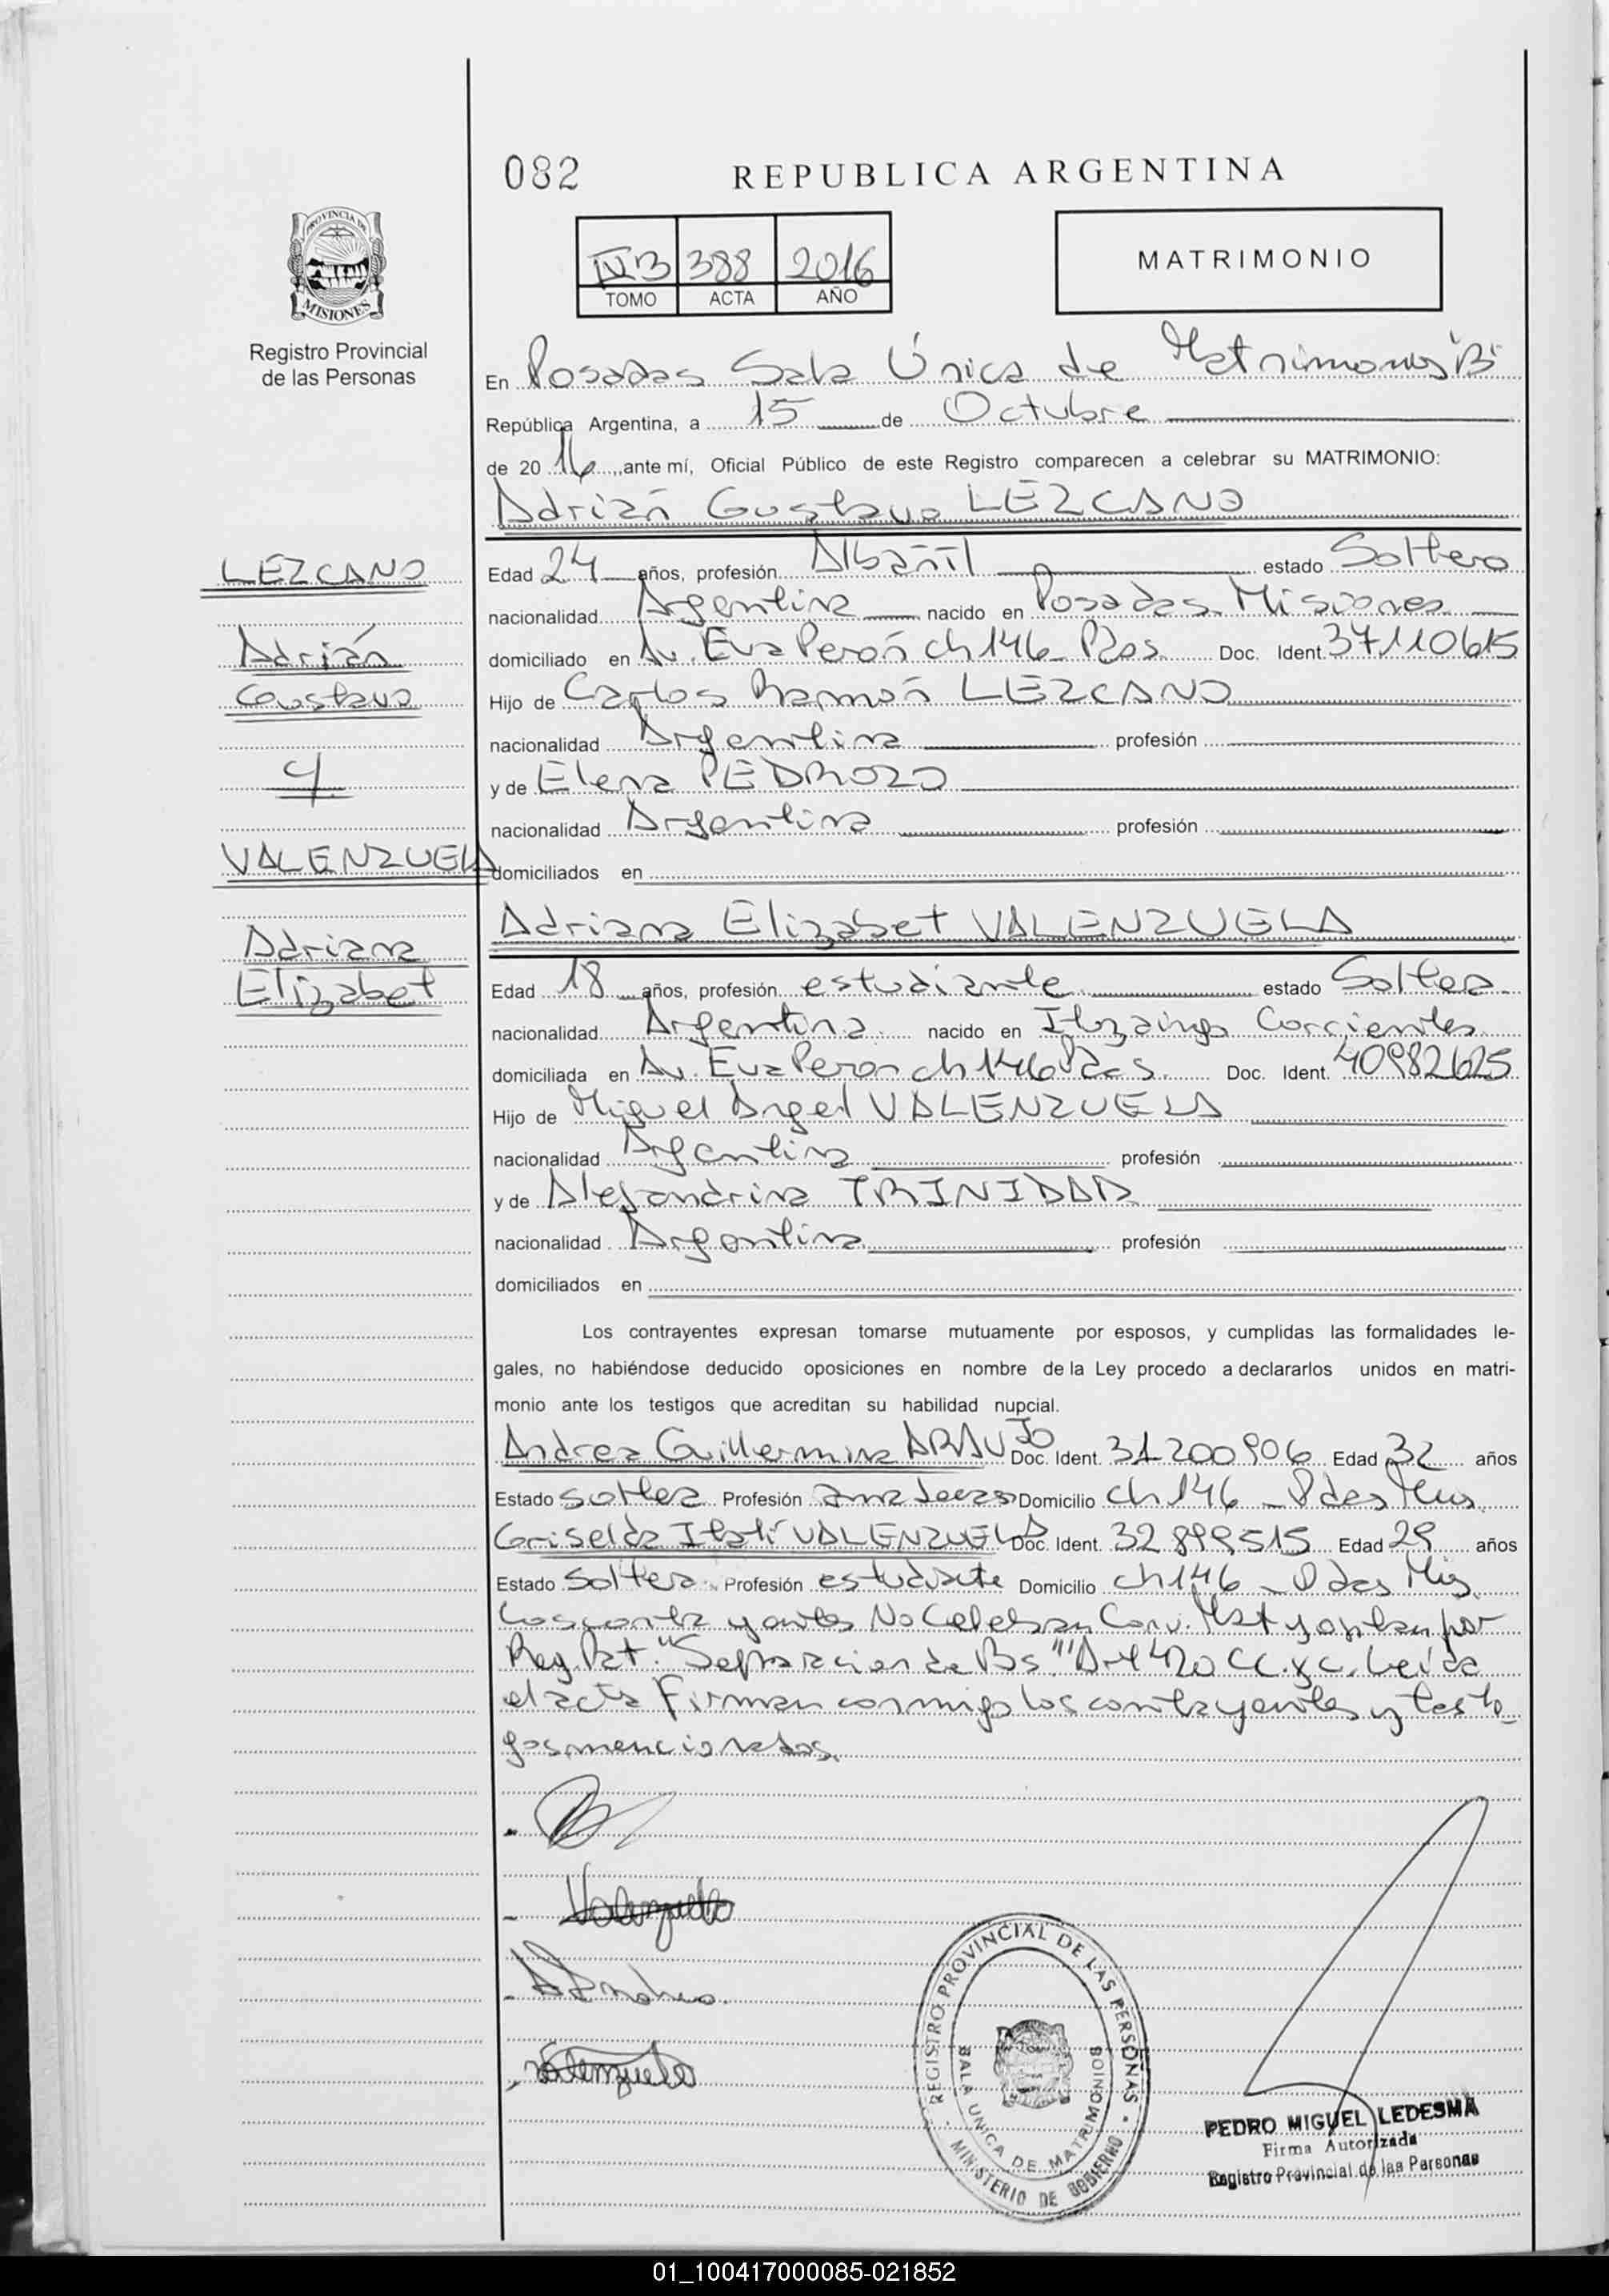 082 REPUBLICA ARGENTINA
PROVINCIA DE
MISIONES
Registro Provincial
de las Personas
IV B 388 2016
TOMO ACTA AÑO
MATRIMONIO
En Posadas Sala Única de Matrimonios "B"
República Argentina, a 15 de Octubre
de 20 16, ante mí, Oficial Público de este Registro comparecen a celebrar su MATRIMONIO:
Adrián Gustavo LEZCANO
LEZCANO
Adrián
Gustavo
y
VALENZUELA
Adriana
Elizabet
Edad 24 años, profesión Albañil estado Soltero
nacionalidad Argentina nacido en Posadas Misiones
domiciliado en Av. Eva Perón ch 146 Pdas. Doc. Ident. 37110615
Hijo de Carlos Ramón LEZCANO
nacionalidad Argentina profesión
y de Elena PEDROZO
nacionalidad Argentina profesión
domiciliados en
Adriana Elizabet VALENZUELA
Edad 18 años, profesión estudiante estado Soltera
nacionalidad Argentina nacido en Ituzaingo Corrientes
domiciliada en Av. Eva Peron ch 146 Pdas. Doc. Ident. 40982625
Hijo de Miguel Angel VALENZUELA
nacionalidad Argentina profesión
y de Alejandrina TRINIDAD
nacionalidad Argentina profesión
domiciliados en
Los contrayentes expresan tomarse mutuamente por esposos, y cumplidas las formalidades le-
gales, no habiéndose deducido oposiciones en nombre de la Ley procedo a declararlos unidos en matri-
monio ante los testigos que acreditan su habilidad nupcial.
Andrea Guillermina ARAUJO Doc. Ident. 31200906 Edad 32 años
Estado Soltera Profesión ama de casa Domicilio ch 146 - Pdas Mnes.
Griselda Itatí VALENZUELA Doc. Ident. 32899515 Edad 29 años
Estado Soltera Profesión estudiante Domicilio ch 146 - Pdas Mis.
Los contrayentes No Celebran Conv. Mat y optan por
Reg. Pat. "Separacion de Bs." Art 420 CC. y C. Leída
el acta Firman conmigo los contrayentes y testi-
gos mencionados.
Valenzuela
Valenzuela
REGISTRO PROVINCIAL DE LAS PERSONAS
SALA UNICA DE MATRIMONIOS
MINISTERIO DE GOBIERNO
PEDRO MIGUEL LEDESMA
Firma Autorizada
Registro Provincial de las Personas
01_100417000085-021852